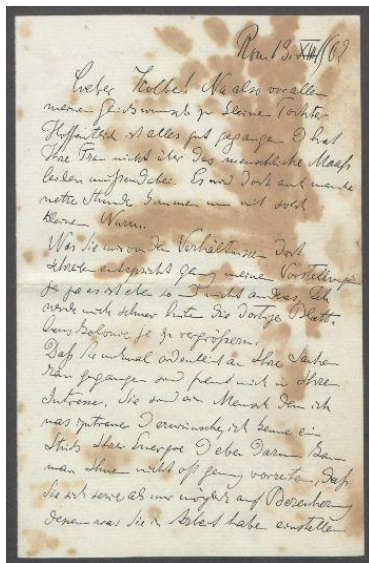 Rom 13. XII 02
Lieber Kolbe! Na also vor allem
meinen Glückwunsch zu kleinen Tochter
Hoffentlich ist alles gut gegangen & hat
Ihre Frau nicht über das menschliche Maaß
leiden müssen dabei. Es wird doch auch manche
nette Stunde kommen um mit solch
kleinem Wurm.
Was Sie mir von den Verhältnissen dort
schreiben entspricht ganz meinen Vorstellungen
ja ja es ist eben so & nicht anders. Ich
werde mich schwer hüten die dortige
Colonie je zu vergrößern.
Daß Sie mal ordentlich an Ihre Sachen
gegangen sind freut mich in Ihrem
Interesse. Sie sind ein Mensch dem ich
was zutraue & erwünsche, ich kenne ein
Stück Ihrer Energie & eben darum kann
man Ihnen nicht oft genug vorreiten, daß
Sie sich soviel als nur möglich auf
dessen was Sie in Arbeit haben einstellen